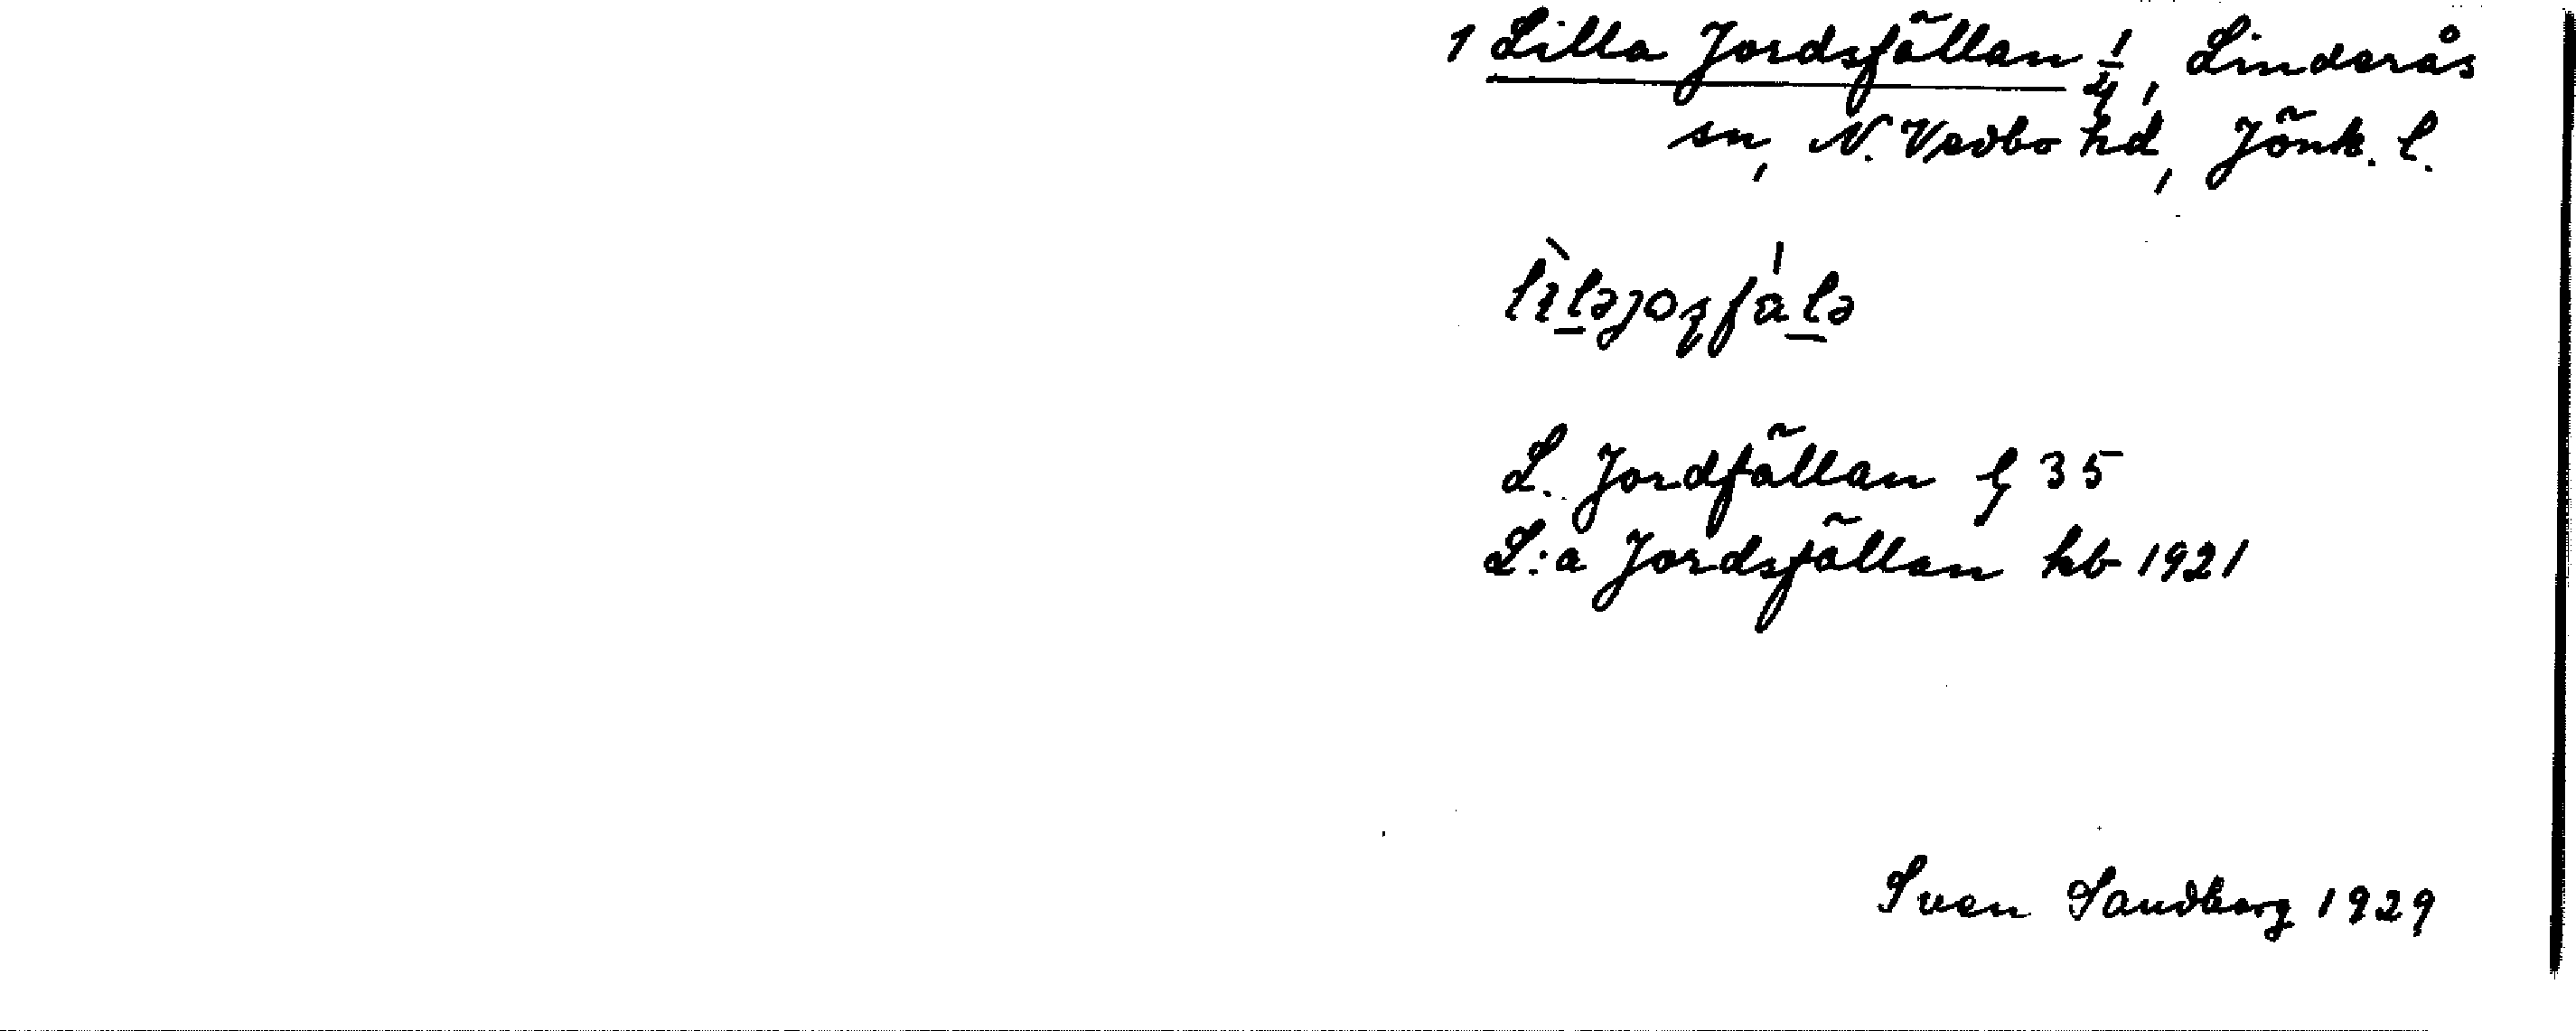 1 Lilla Jordsfällan 1/4, Linderås
sn, N. Vedbo hd, Jönk. l.
L. Jordfällan 35
L:a Jordsfällan kb 1921
Sven Sandberg 1929